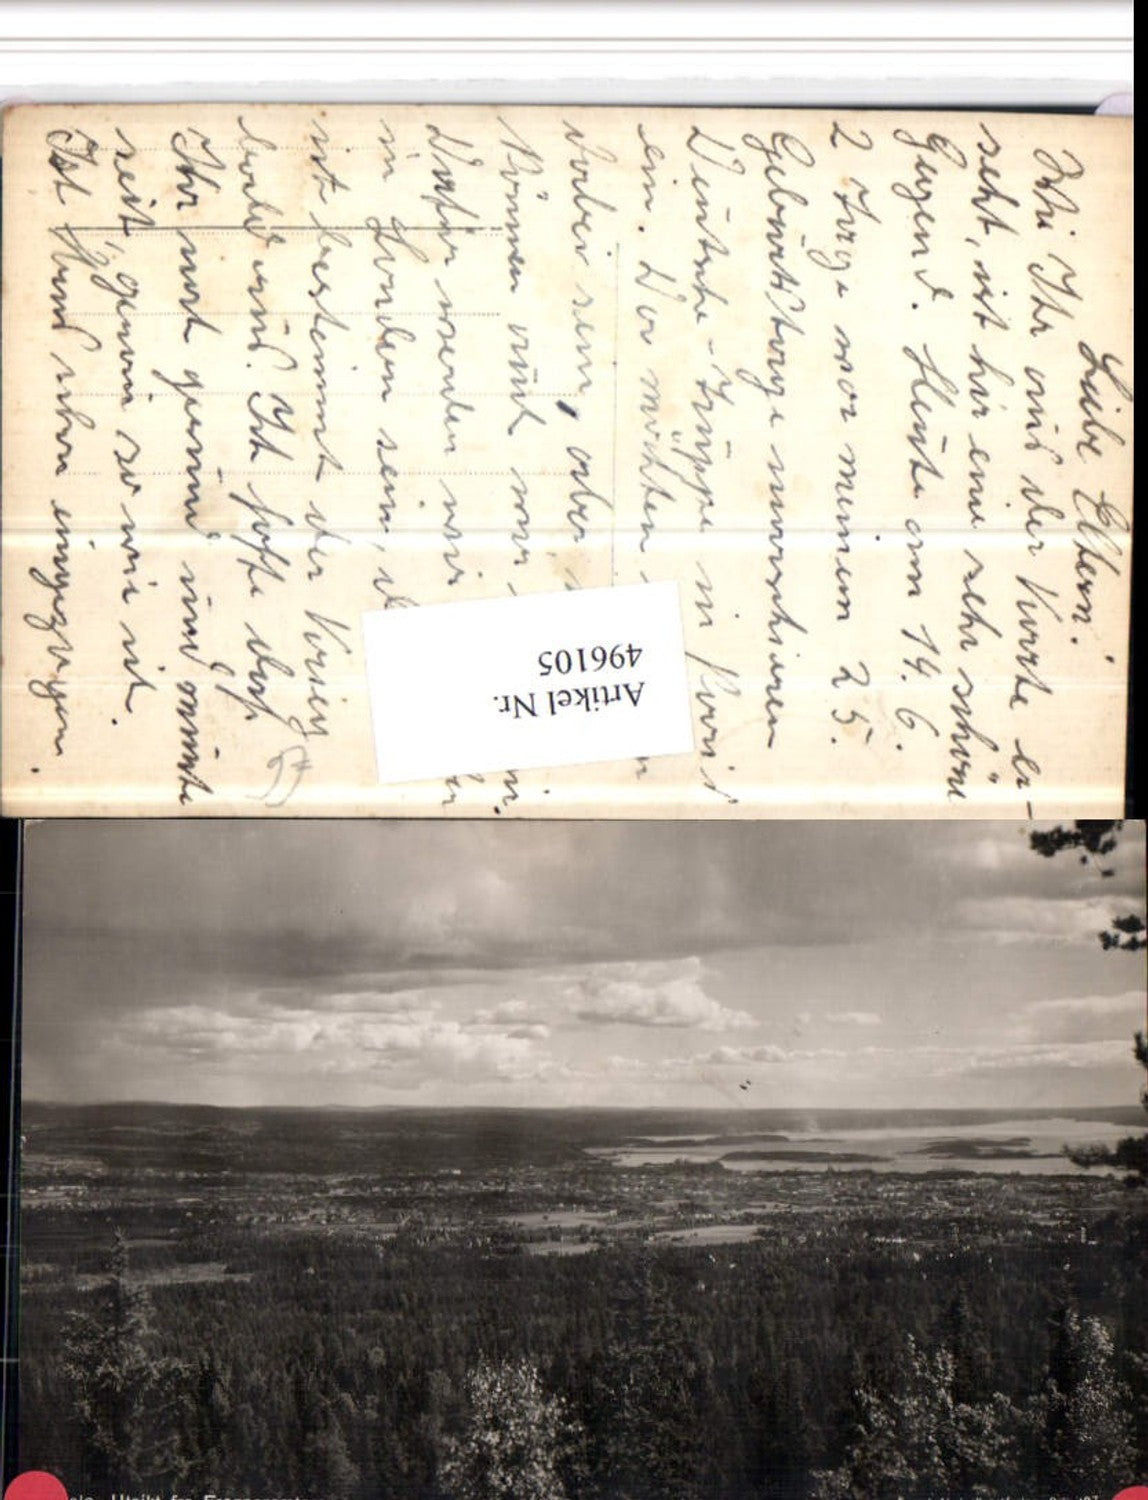 Liebe Eltern!
Wie Ihr auf der Karte er-
seht, ist hir eine sehr schöne
Gegend. Heute am 14. 6.
2 Tage vor meinem 25.
Geburtstage marschieren
Deutsche-Truppe in Paris
ein. Wir möchten
dabei sein, aber
können auch nur
Dafür werden wir
in London sein,
ist bestimmt der Krieg
bald end. Ich hoffe daß
Ihr noch gesund und munte
seit, genau so wie ich.
Ist Hund schon eingezogen.
Artikel Nr.
496105
Utsikt fra